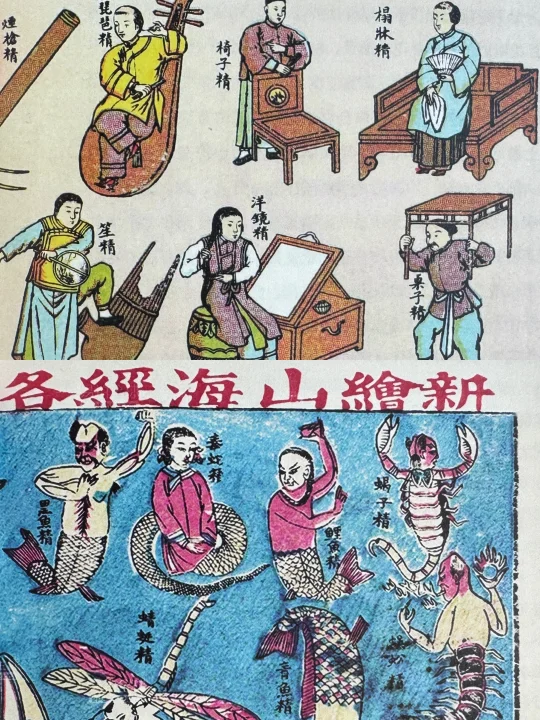 煙槍精
琵琶精
椅子精
榻牀精
笙精
洋鏡精
桌子精
新繪山海經各
黑魚精
鯉魚精
蝎子精
蜻蜓精
青魚精